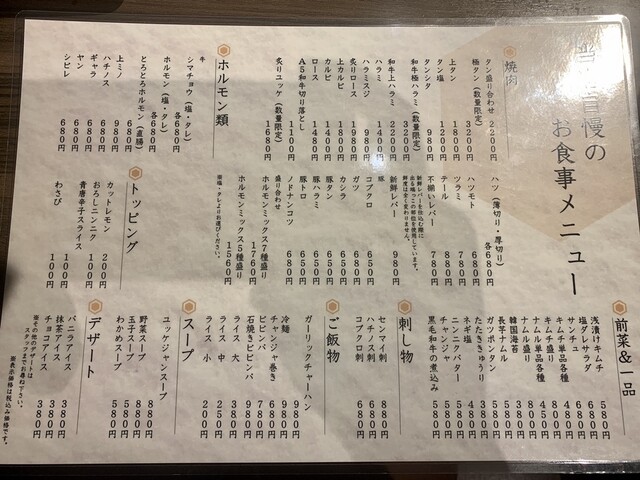 自慢の
お食事メニュー
焼肉
タン盛り合わせ 2200円
極タン(数量限定) 3200円
上タン 1800円
タン塩 1200円
タンシタ 980円
和牛極ハラミ(数量限定) 3200円
和牛上ハラミ 2200円
ハラミ 1400円
ハラミスジ 980円
炙りロース 1980円
上カルビ 1980円
カルビ 1400円
ロース 1480円
A5和牛切り落とし 1100円
炙りユッケ(数量限定) 1680円
ハツ(薄切り・厚切り) 各680円
ハツモト 680円
ツラミ 780円
テール 880円
不揃いレバー 780円
新鮮レバー 980円
豚
コブクロ 650円
ガツ 680円
カシラ 650円
豚タン 650円
豚ハラミ 650円
豚トロ 650円
ノドナンコツ 650円
盛り合わせ
ホルモンミックス7種盛り 1760円
ホルモンミックス5種盛り 1560円
※塩・タレよりお選びください。
ホルモン類
牛
シマチョウ(塩・タレ) 各680円
ホルモン(塩・タレ) 各680円
とろとろホルモン(直腸) 680円
上ミノ 980円
ハチノス 680円
ギャラ 680円
ヤン 680円
シビレ 680円
トッピング
カットレモン 200円
おろしニンニク 100円
青唐辛子スライス 100円
わさび 100円
前菜&一品
浅漬けキムチ 580円
塩ダレサラダ 680円
サンチュ
キムチ単品各種
キムチ盛り
ナムル単品各種
ナムル盛り
韓国海苔
長芋ナムル
ガツポンタン
たたききゅうり
ネギ塩
ニンニクバター
チャンジャ
黒毛和牛の煮込み 580円
刺し物
センマイ刺 880円
ハチノス刺 680円
コブクロ刺 680円
ご飯物
ガーリックチャーハン 980円
冷麺 980円
チャンジャ巻き 680円
ビビンバ 780円
石焼きビビンバ 980円
ライス 大 350円
ライス 中 250円
ライス 小 200円
スープ
ユッケジャンスープ 880円
野菜スープ 580円
玉子スープ 580円
わかめスープ 580円
デザート
バニラアイス 380円
抹茶アイス 380円
チョコアイス 380円
※その他のデザートは
スタッフまでお尋ね下さい。
※表示価格は税込み価格です。